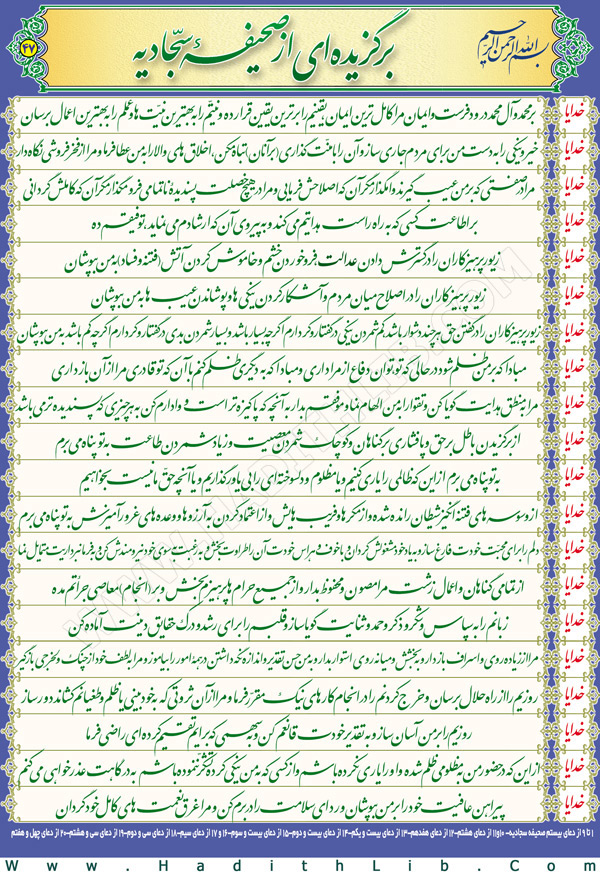 بسم الله الرحمن الرحیم
برگزیده‌ای از صحیفهٔ سجّادیه
۴۷
خدایا بر محمد و آل محمد درود فرست و ایمان مرا کامل ترین ایمان یقینم را برترین یقین قرار ده و نیتم را به بهترین نیت ها و عملم را به بهترین اعمال برسان
خدایا خیر و نیکی را به دست من برای مردم جاری ساز و آن را با منّت گذاری (بر آنان) تباه مکن، اخلاق های والا را به من عطا فرما و مرا از فخر فروشی نگاه دار
خدایا مرا در صفتی که بر من عیب گیرند وامگذار مگر آن که اصلاحش فرمایی و مرا در هیچ خصلت پسندیدهٔ ناتمامی فرو مگذار مگر آن که کاملش گردانی
خدایا بر اطاعت کسی که به راه راست هدایتم می کند و به پیروی آن که ارشادم می نماید، توفیقم ده
خدایا زیور پرهیزکاران را در گسترش دادن عدالت، فرو خوردن خشم و خاموش کردن آتش (فتنه و فساد) به من بپوشان
خدایا زیور پرهیزکاران را در اصلاح میان مردم و آشکار کردن نیکی ها و پوشاندن عیب ها به من بپوشان
خدایا زیور پرهیزکاران را در گفتن حق هر چند دشوار باشد کم شمردن نیکی در گفتار و کردارم اگرچه بسیار باشد و بسیار شمردن بدی در گفتار و کردارم اگرچه کم باشد به من بپوشان
خدایا مبادا که بر من ظلم شود در حالی که تو توان دفاع از مرا داری و مبادا که به دیگری ظلم کنم با آن که تو قادری مرا از آن بازداری
خدایا مرا به منطق هدایت گویا کن و تقوا را به من الهام نما و موفقم بدار به آنچه که پاکیزه تر است و وادارم کن به هر چیزی که پسندیده تر می باشد
خدایا از برگزیدن باطل بر حق و پافشاری بر گناهان و کوچک شمردن معصیت و زیاد شمردن طاعت به تو پناه می برم
خدایا به تو پناه می برم از این که ظالمی را یاری کنیم و یا مظلوم و دلسوخته ای را بی یاور گذاریم و یا آنچه حقّ ما نیست بخواهیم
خدایا از وسوسه های فتنه انگیز شیطان رانده شده و از مکرها و فریب هایش و از اعتماد کردن به آرزوها و وعده های غرور آمیزش به تو پناه می برم
خدایا دلم را برای محبت خودت فارغ ساز و به یاد خود مشغولش گردان و با خوف و هراس خودت آن را طراوت بخش و به رغبت سوی خود نیرومندش کن و به فرمانبرداریت متمایل نما
خدایا از تمامی گناهان و اعمال زشت مرا مصون و محفوظ بدار و از جمیع حرام ها پرهیزم بخش و بر (انجام) معاصی جرأتم مده
خدایا زبانم را به سپاس و شکر و ذکر و حمد و ثنایت گویا ساز و قلبم را برای رشد و درک حقایق دینت آماده کن
خدایا مرا از زیاده روی و اسراف باز دار و به بخشش و میانه روی استوار بدار و به من حسن تقدیر و اندازه نگه داشتن در همهٔ امور را بیاموز و مرا به لطف خود از چنگ ولخرجی بازگیر
خدایا روزیم را از راه حلال برسان و خرج کردنم را در انجام کارهای نیک مقرّر فرما و مرا از آن ثروتی که به خودبینی یا ظلم و طغیانم کشاند دور ساز
خدایا روزیم را بر من آسان ساز و به تقدیر خودت قانعم کن و به سهمی که برایم تقسیم کرده ای راضی فرما
خدایا از این که در حضور من به مظلومی ظلم شده و او را یاری نکرده باشم و از کسی که به من نیکی کرده تشکر ننموده باشم به درگاهت عذر خواهی می کنم
خدایا پیراهن عافیت خود را بر من بپوشان و ردای سلامت را در برم کن و مرا غرق نعمت های کامل خود گردان
۱ تا ۹ از دعای بیستم صحیفه سجادیه- ۱۰ و ۱۱ از دعای هشتم- ۱۲ از دعای هفدهم- ۱۳ از دعای بیست و یکم- ۱۴ از دعای بیست و دوم- ۱۵ از دعای بیست و سوم- ۱۶ و ۱۷ از دعای سی‌ام- ۱۸ از دعای سی و دوم- ۱۹ از دعای سی و هشتم- ۲۰ از دعای چهل و هفتم
www.HadithLib.Com